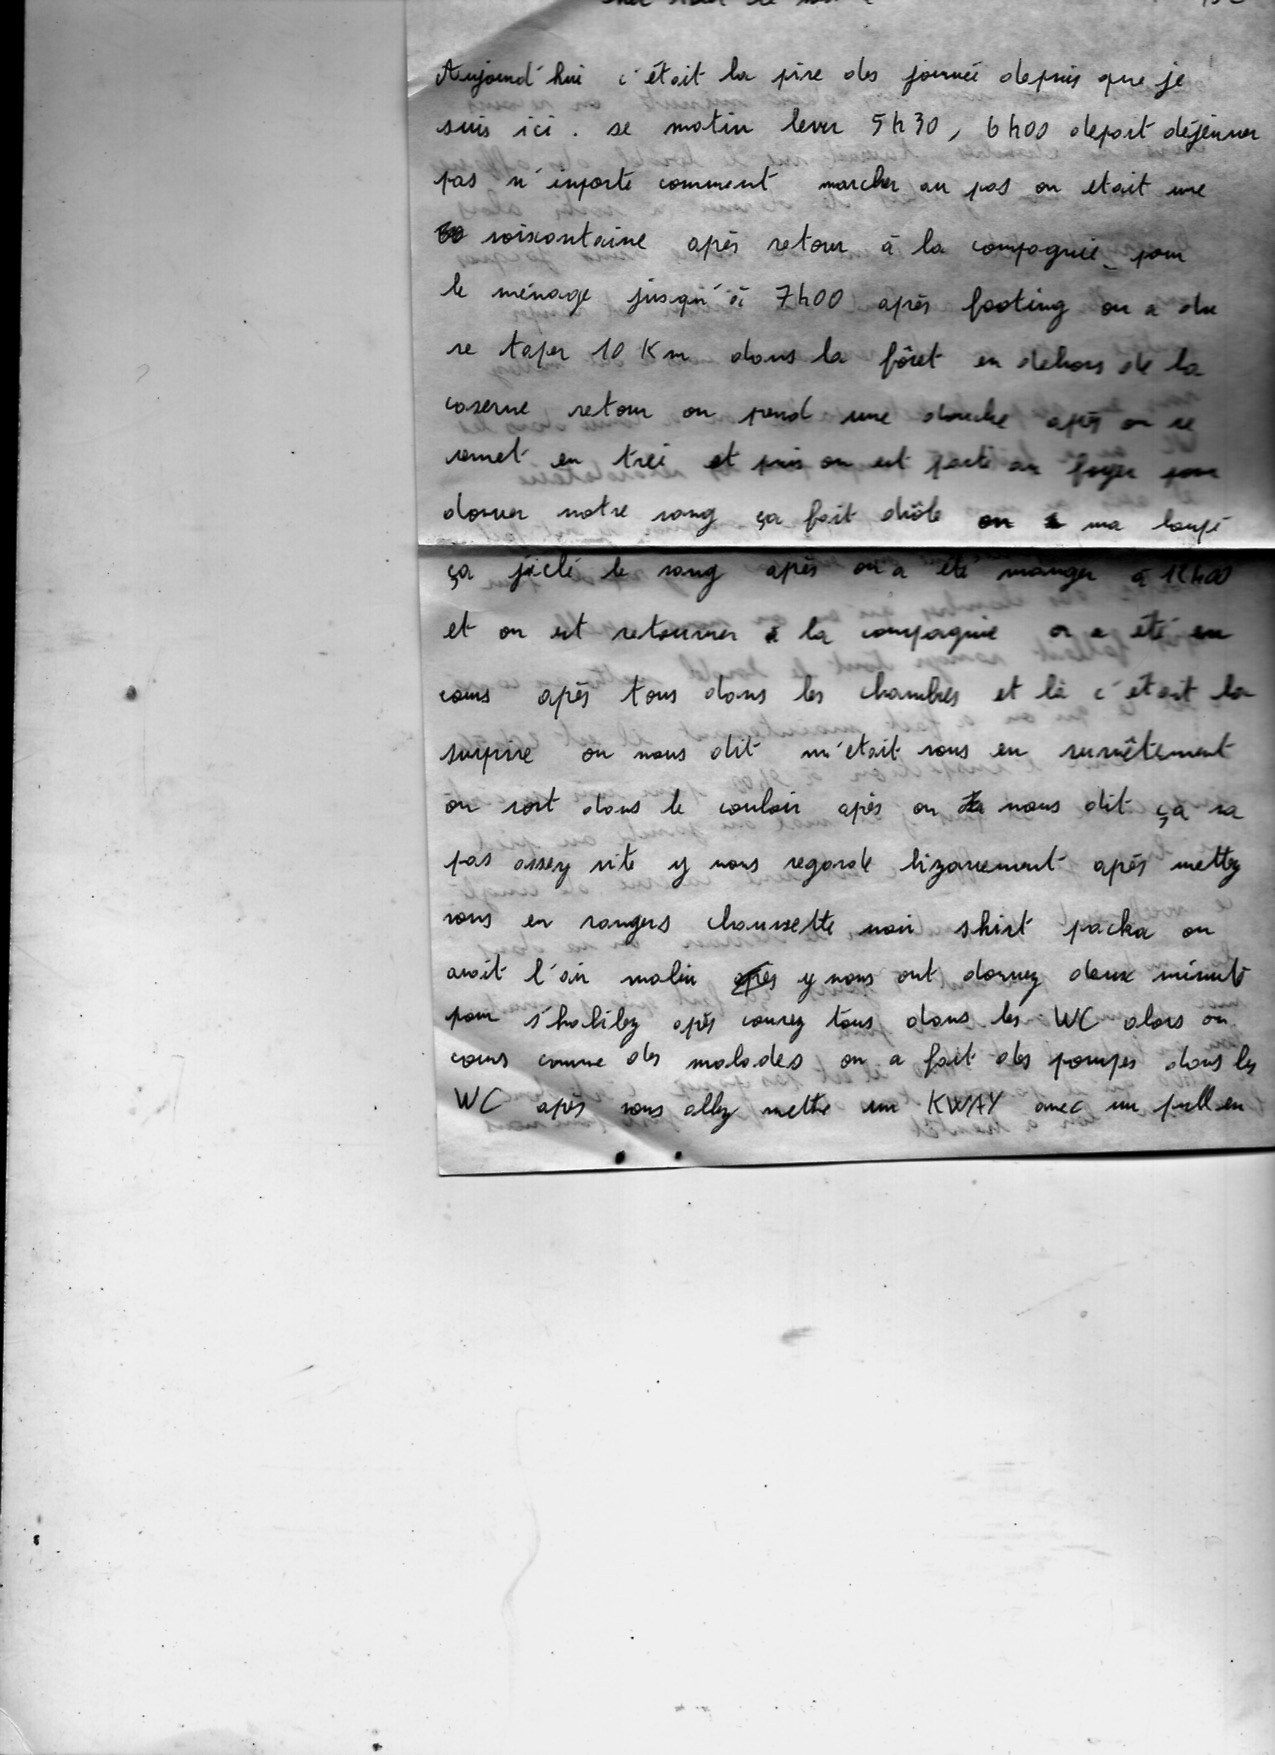 Aujourd'hui c'était la pire des journée depuis que je
suis ici. se matin lever 5h30, 6h00 depart déjeuner
pas n'importe comment marcher au pas on etait une
soixantaine après retour à la compagnie pour
le ménage jusqu'à 7h00 après footing on a du
se taper 10 Km dans la fôret en dehors de la
caserne retour on prend une douche après on se
remet en trei et puis on est parti au foyer pour
donner notre sang ça fait drôle on ma loupé
ça jiclé le sang après on a été manger à 12h00
et on est retourner à la compagnie on a été en
cours après tous dans les chambres et là c'était la
surprise on nous dit m'etait vous en survêtement
on sort dans le couloir après on nous dit ça va
pas assez vite y nous regarde bizarrement après mettez
vous en rangers chaussette noir shirt packa on
avait l'air malin après y nous ont donnez deux minute
pour s'habilez après courez tous dans les WC alors on
cours comme des malades on a fait des pompes dans les
WC après vous allez mettre un KWAY avec un pull en